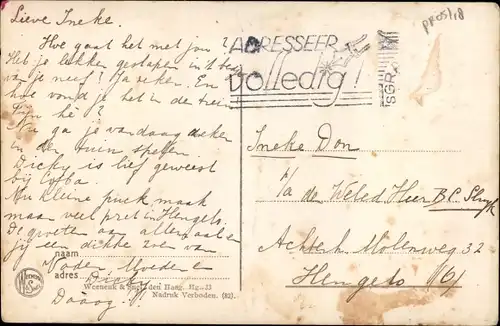 Lieve Ineke.
Hoe gaat het met jou?
Heb je lekker geslapen in 't bed
van je neef? Ja zeker. En
hoe vond je het in de trein
Fijn hè?
Nu ga je vandaag zeker
in de tuin spelen
Dicky is lief geweest
bij
Nu kleine puck maak
maar veel pret in Hengelo.
De groeten aan allemaal en
jij een dikke zoen van
naam Vader, Moeder en
adres Dicky
Daaag!!
Weenenk & Snel, den Haag. Hg.-23
Nadruk Verboden. (82).
PROS/18
ADRESSEER
volledig!
SGR
Ineke Don
p/a de Weled Heer B.C.
Achteh. Molenweg 32
Hengelo (O)